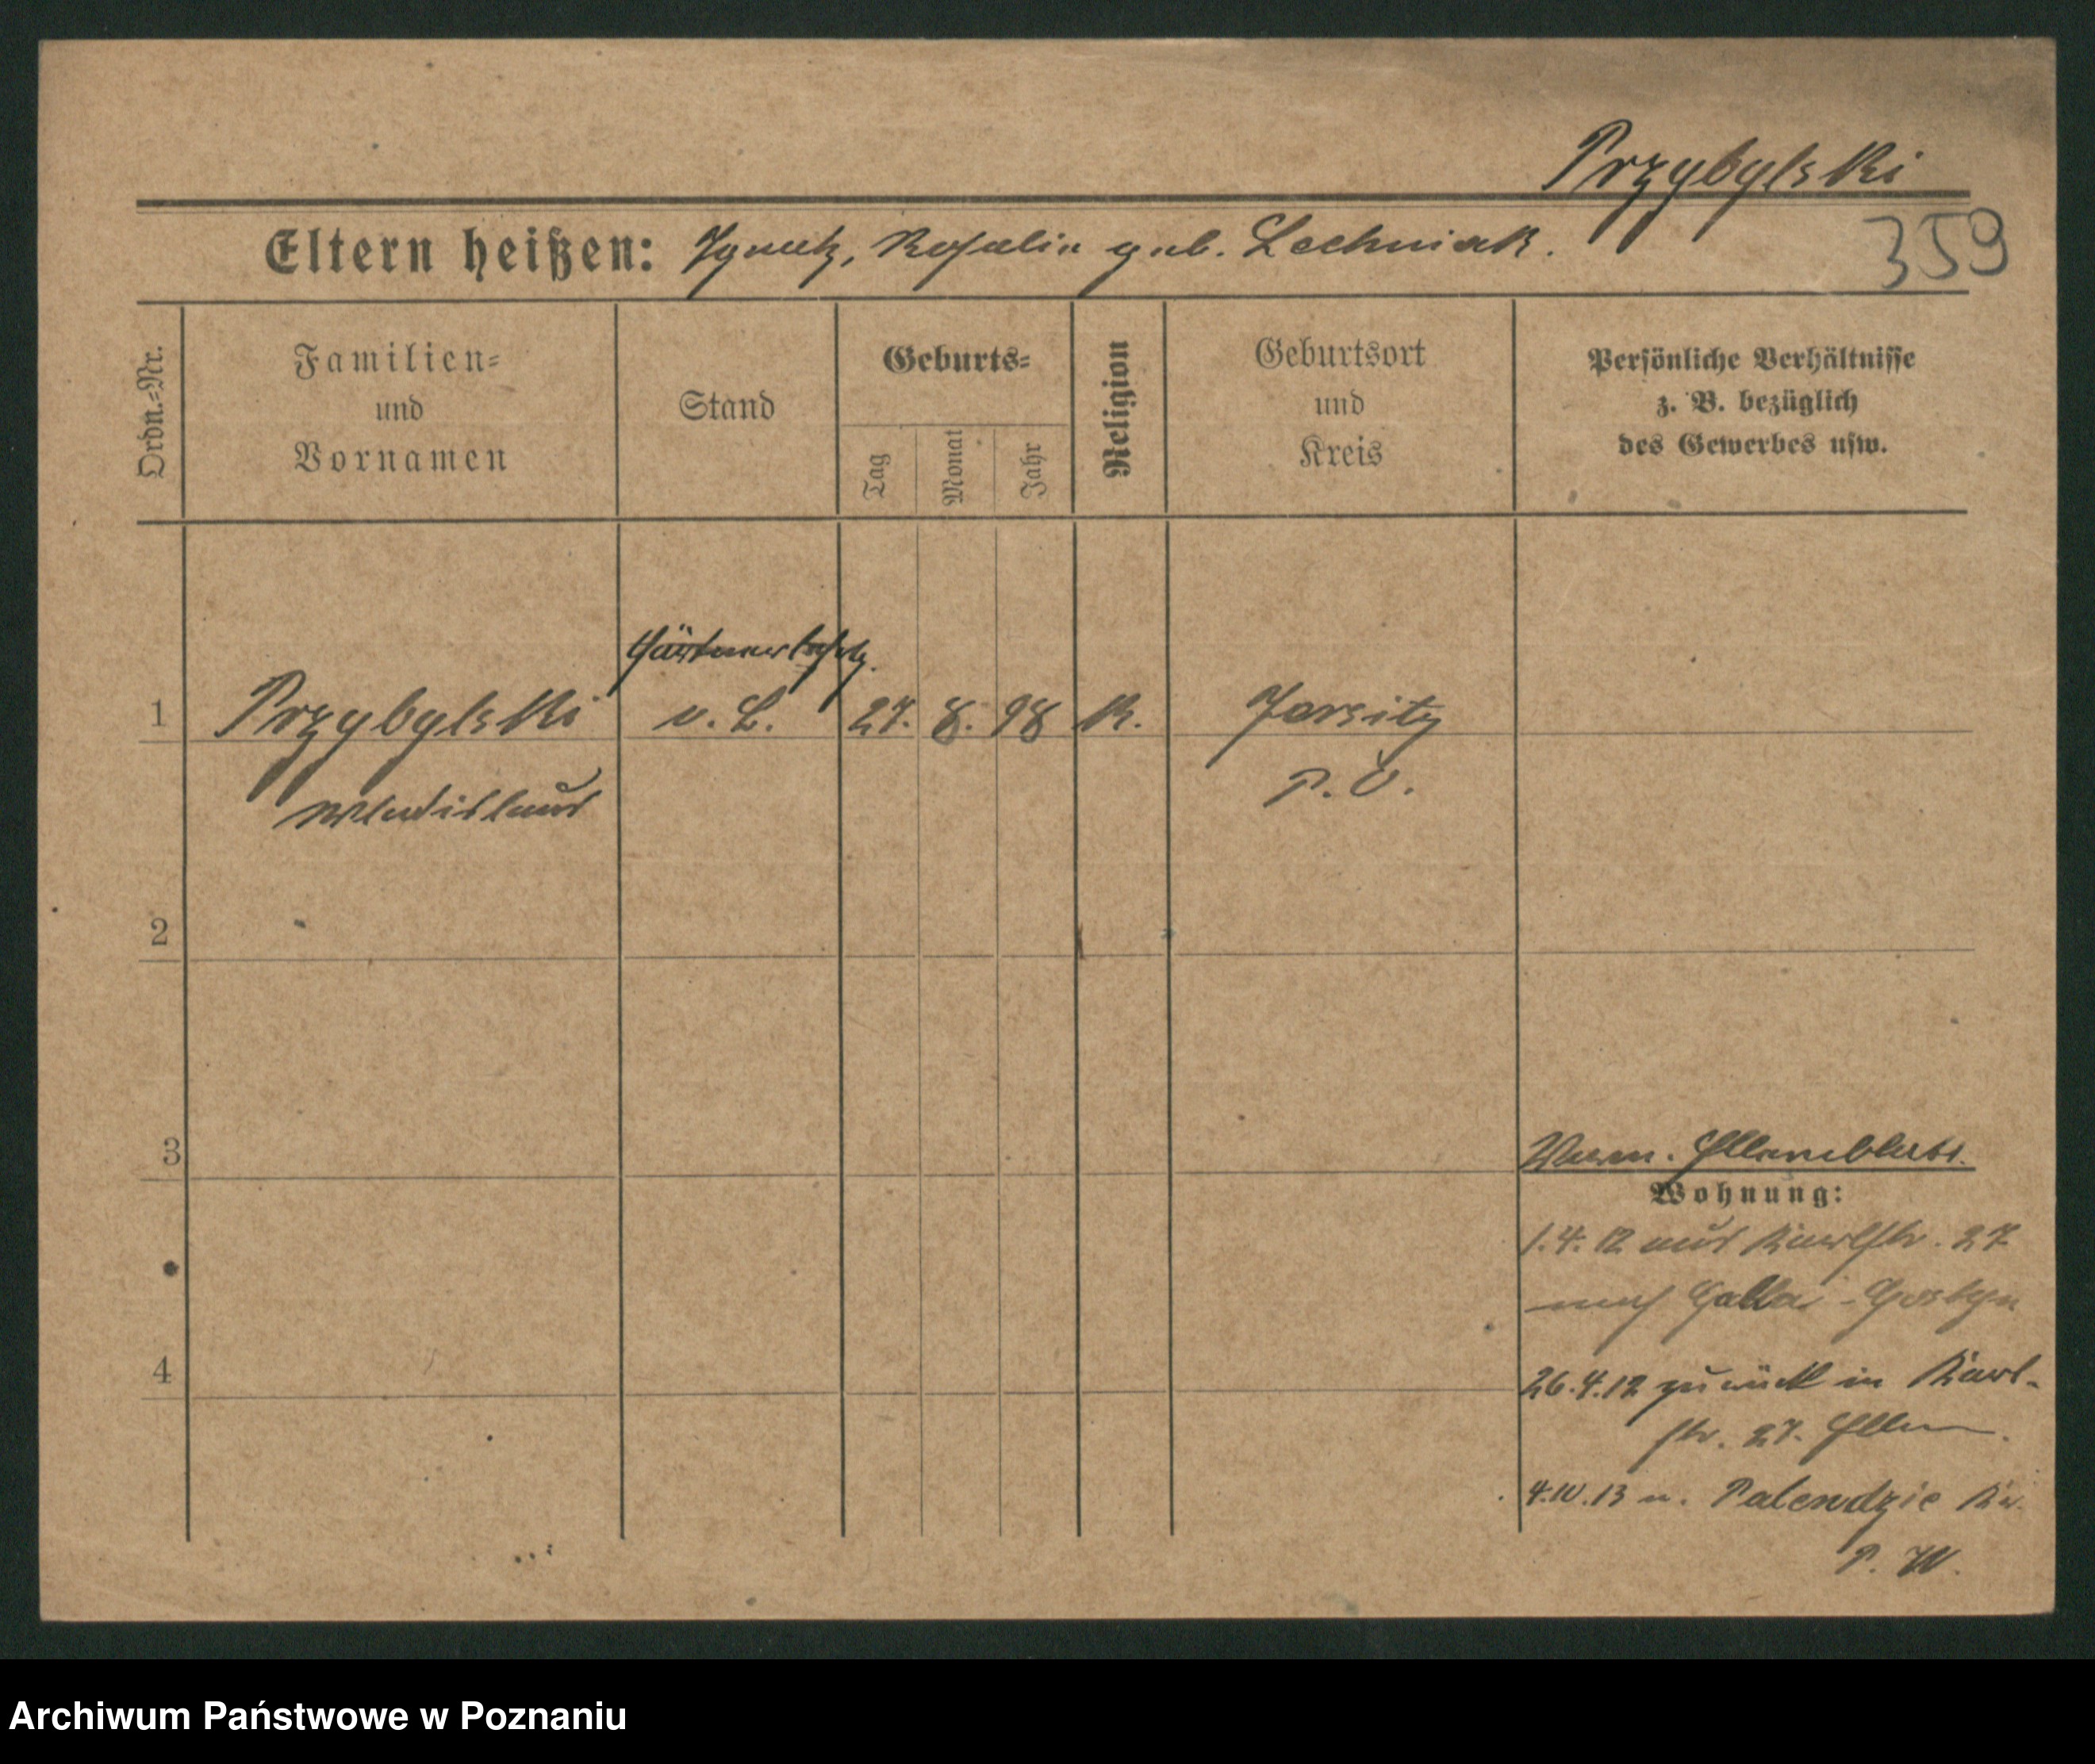 Przybylski
359
Eltern heißen: Ignatz, Rosalie geb. Lechniak.
Ordn.-Nr.
Familien-
und
Vornamen
Stand
Geburts-
Tag
Monat
Jahr
Religion
Geburtsort
und
Kreis
Persönliche Verhältnisse
z. B. bezüglich
des Gewerbes usw.
1 Przybylski v. L. 27. 8. 98 K. Jersitz
P. O.
Wladislaus
2
3
Elternblatt.
Wohnung:
1.4.12 aus 27
nach Galla - Gostyn
4
26.4.12 zurück in
str. 27. Eltern.
4.10.13 n. Palendzie Kr.
P. W.
Archiwum Państwowe w Poznaniu